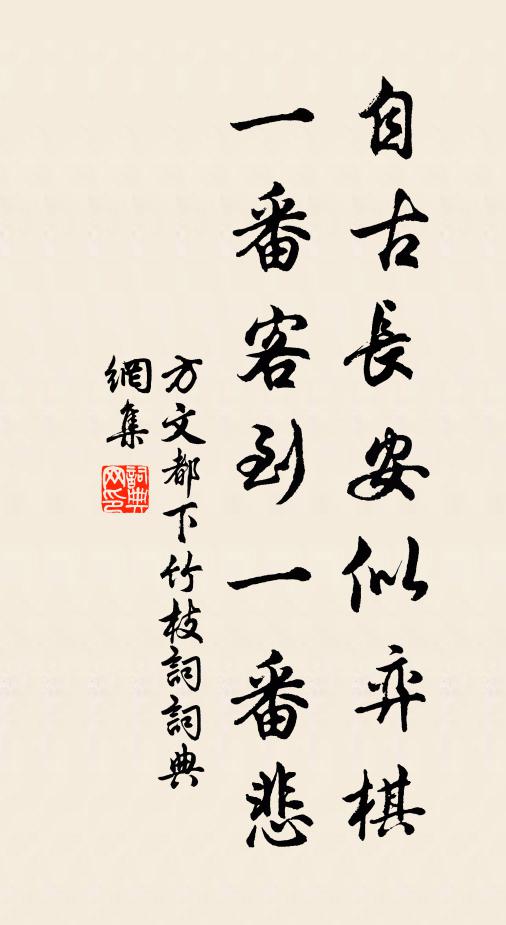 自古長安似弈棋
一番客到一番悲
方文都下竹枝詞詞典
網集
詞典網印